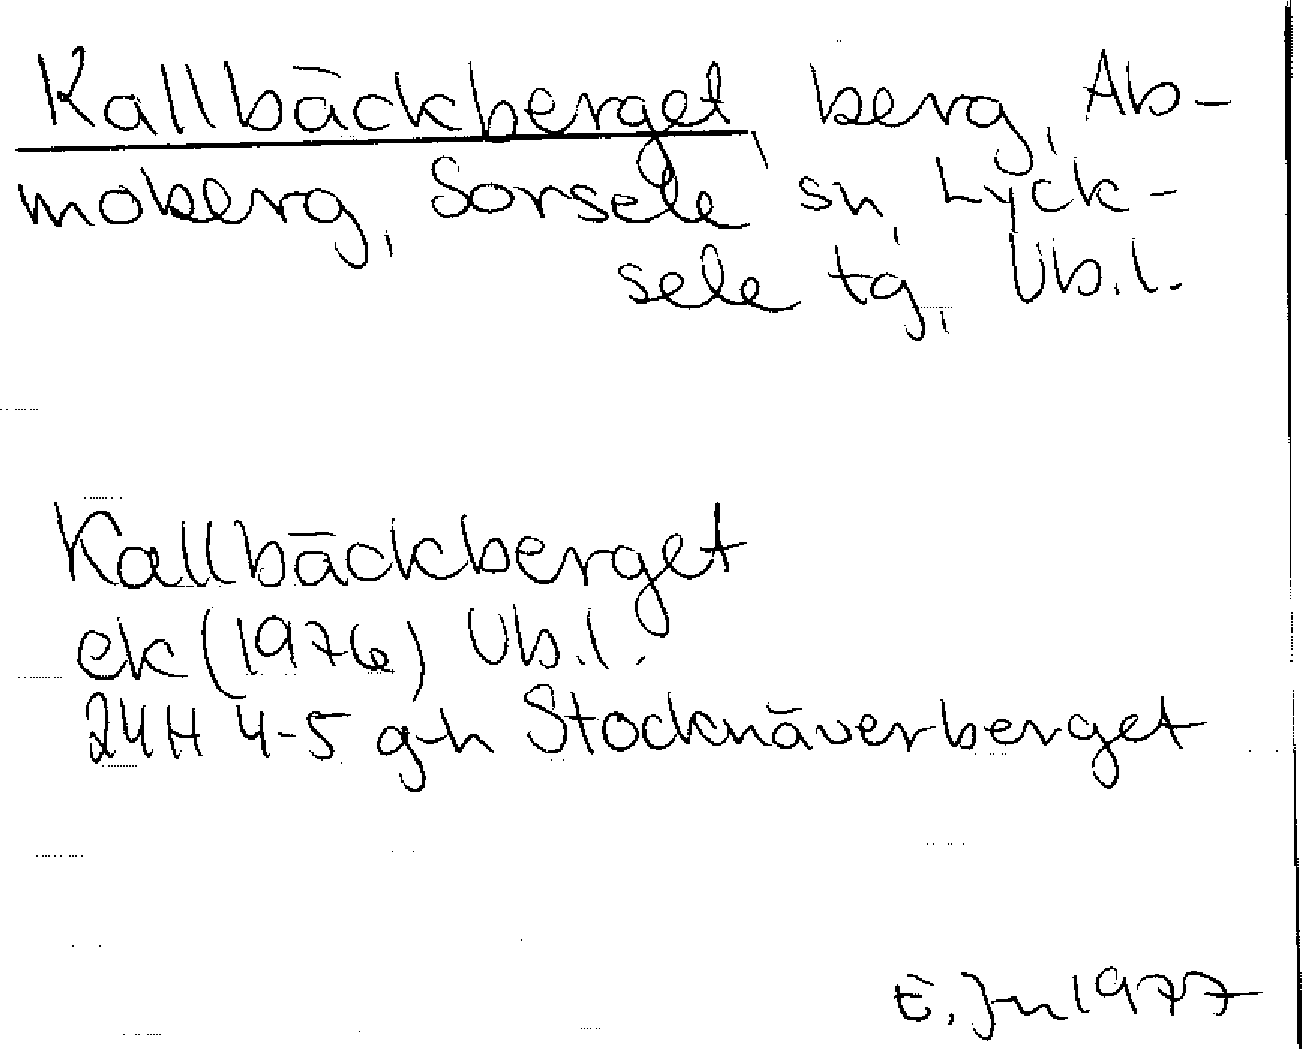 Kallbäckberget, berg, Ab-
moberg, Sorsele sn, Lyck-
sele tg, Vb.l.
Kallbäckberget
ek (1976) Vb.l.
24H 4-5 g-h Stocknäverberget
E. Jn 1977